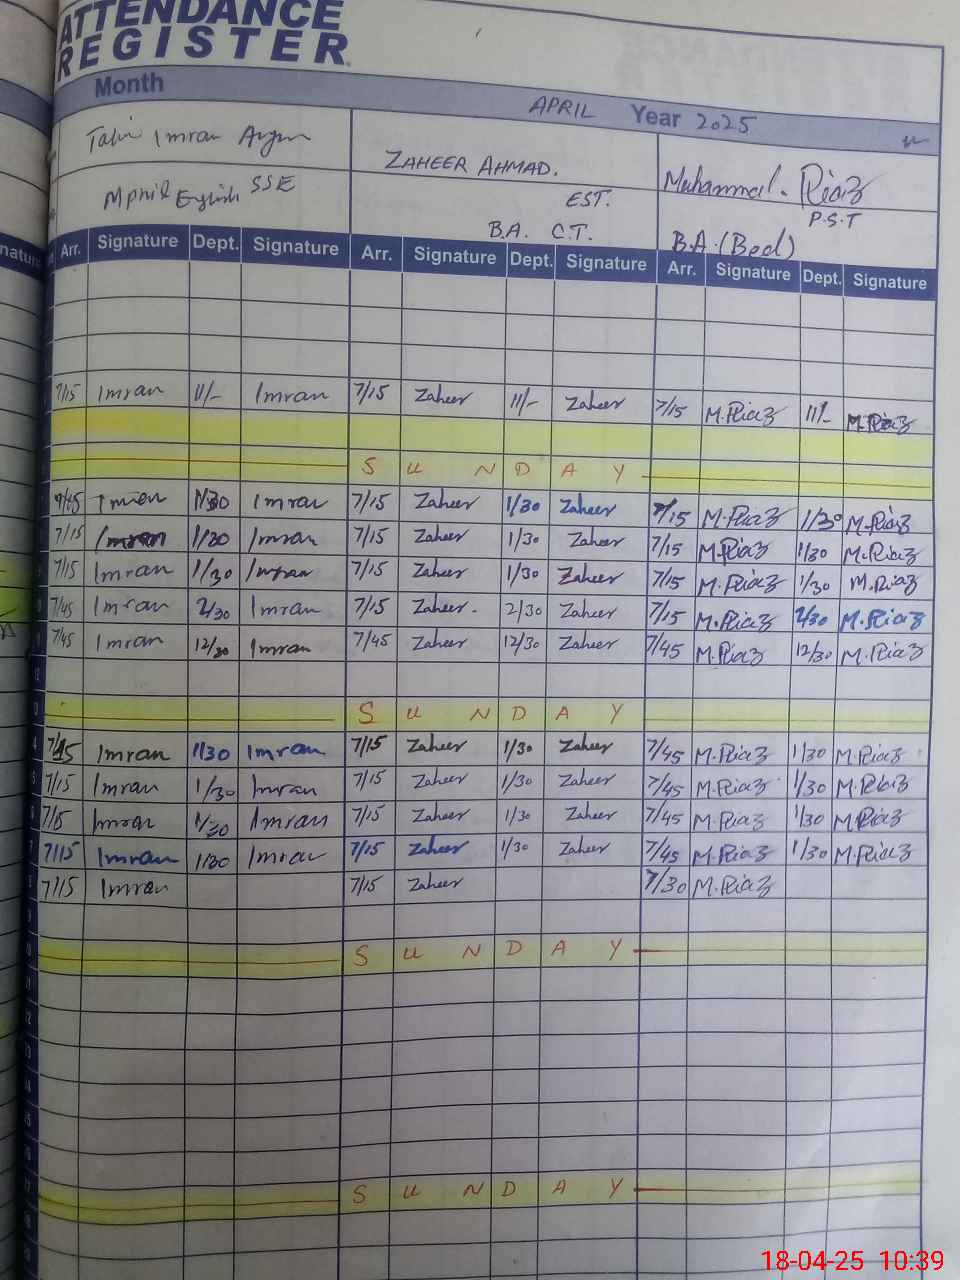 ATTENDANCE
REGISTER
Month APRIL Year 2025
Imran ZAHEER AHMAD. Muhammad. Riaz
Mphil English SSE EST. P.S.T
B.A. C.T. B.A.(Bed)
Arr. Signature Dept. Signature Arr. Signature Dept. Signature Arr. Signature Dept. Signature
7/15 Imran 11/- Imran 7/15 Zaheer 11/- Zaheer 7/15 M.Riaz 11/- M.Riaz
SUNDAY
7/45 Imran 1/30 Imran 7/15 Zaheer 1/30 Zaheer 7/15 M.Riaz 1/30 M.Riaz
7/15 Imran 1/30 Imran 7/15 Zaheer 1/30 Zaheer 7/15 M.Riaz 1/30 M.Riaz
7/15 Imran 1/30 Imran 7/15 Zaheer 1/30 Zaheer 7/15 M.Riaz 1/30 M.Riaz
7/45 Imran 2/30 Imran 7/15 Zaheer. 2/30 Zaheer 7/15 M.Riaz 2/30 M.Riaz
7/45 Imran 12/30 Imran 7/45 Zaheer 12/30 Zaheer 7/45 M.Riaz 12/30 M.Riaz
12
SUNDAY
7/15 Imran 1/30 Imran 7/15 Zaheer 1/30 Zaheer 7/45 M.Riaz 1/30 M.Riaz
7/15 Imran 1/30 Imran 7/15 Zaheer 1/30 Zaheer 7/45 M.Riaz 1/30 M.Riaz
7/15 Imran 1/30 Imran 7/15 Zaheer 1/30 Zaheer 7/45 M.Riaz 1/30 M.Riaz
7/15 Imran 1/30 Imran 7/15 Zaheer 1/30 Zaheer 7/45 M.Riaz 1/30 M.Riaz
7/15 Imran 7/15 Zaheer 7/30 M.Riaz
SUNDAY
SUNDAY
18-04-25 10:39